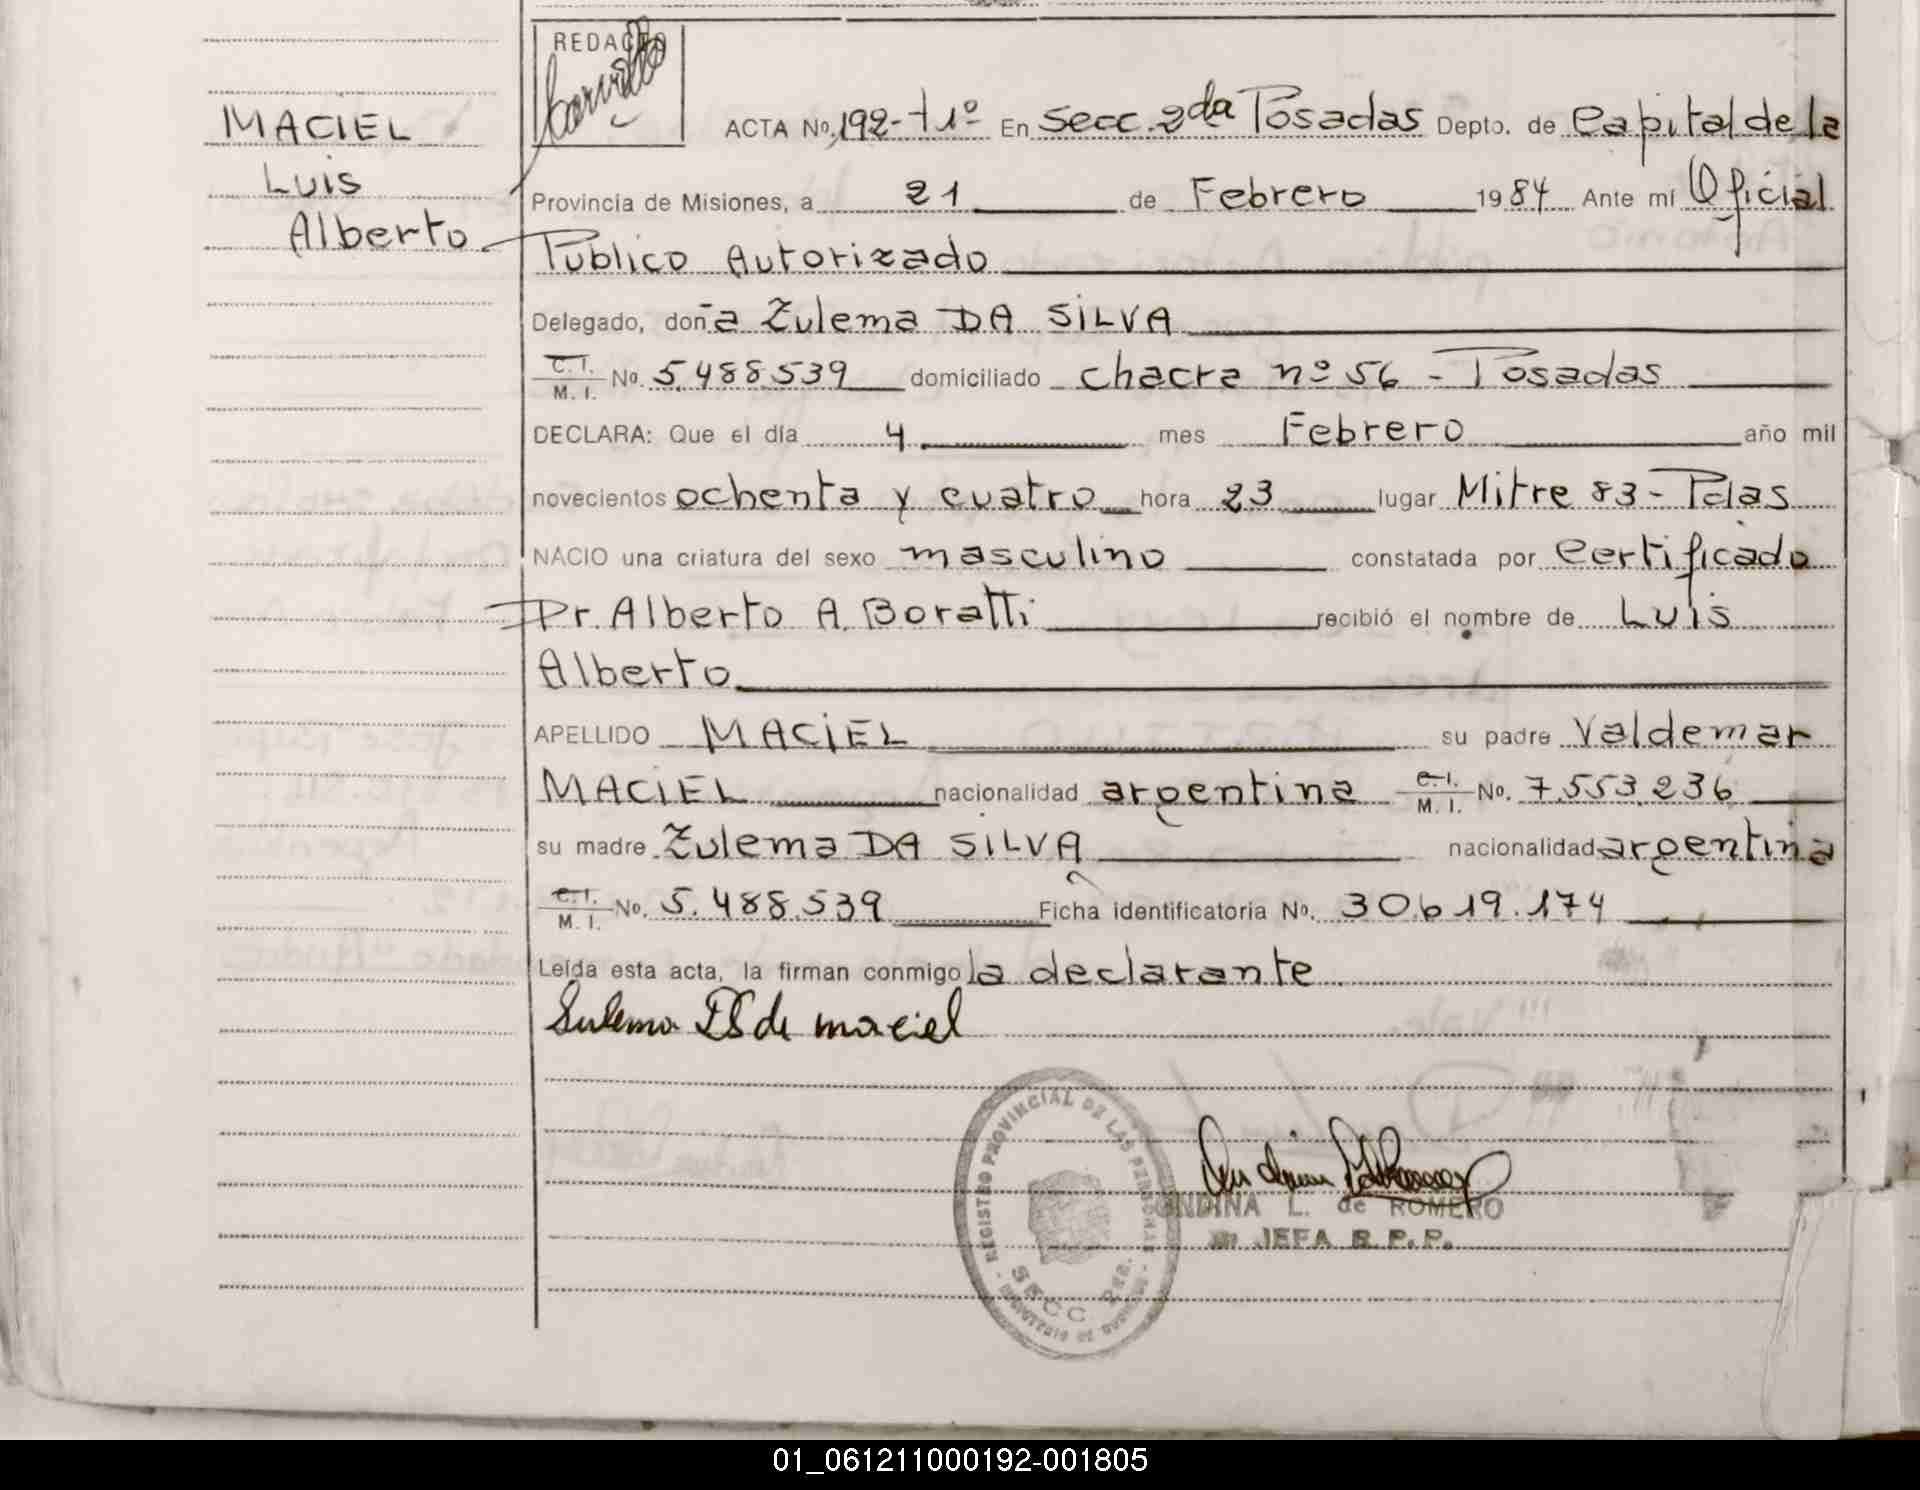 REDACTO
MACIEL
Luis
Alberto
ACTA No. 192-t1º En secc. 2da Posadas Depto. de Capital de la
Provincia de Misiones, a 21 de Febrero 1984 Ante mí Oficial
Público Autorizado
Delegado, doña Zulema DA SILVA
C.I. M.I. No. 5.488.539 domiciliado chacra nº 56 - Posadas
DECLARA: Que el día 4 mes Febrero año mil
novecientos ochenta y cuatro hora 23 lugar Mitre 83 - Pdas
NACIO una criatura del sexo masculino constatada por certificado
Dr. Alberto A. Boratti recibió el nombre de Luis
Alberto
APELLIDO MACIEL su padre Valdemar
MACIEL nacionalidad argentina C.I. M.I. No. 7.553.236
su madre Zulema DA SILVA nacionalidad argentina
C.I. M.I. No. 5.488.539 Ficha identificatoria No. 30.619.174
Leída esta acta, la firman conmigo la declarante
Sulema DS de maciel
REGISTRO PROVINCIAL DE LAS PERSONAS
SECC 2da.
ONDINA L. de ROMERO
JEFA R.P.P.
01_061211000192-001805